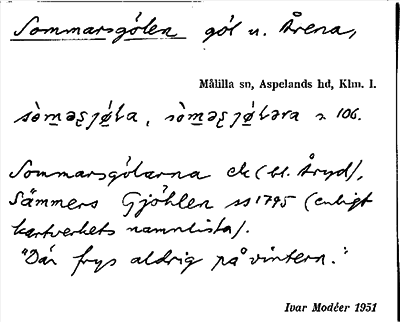 Sommarsgölen göl n. Årena,
Målilla sn, Aspelands hd, Klm. l.
sòm̲əʂjø̀l̲a, sòm̲əʂjø̀l̲əra 106.
Sommarsgölarna ek (bl. Åryd),
Sämmers Gjöhlen ss 1795 (enligt
kartverkets namnlista).
"Där frys aldrig på vintern."
Ivar Modéer 1951